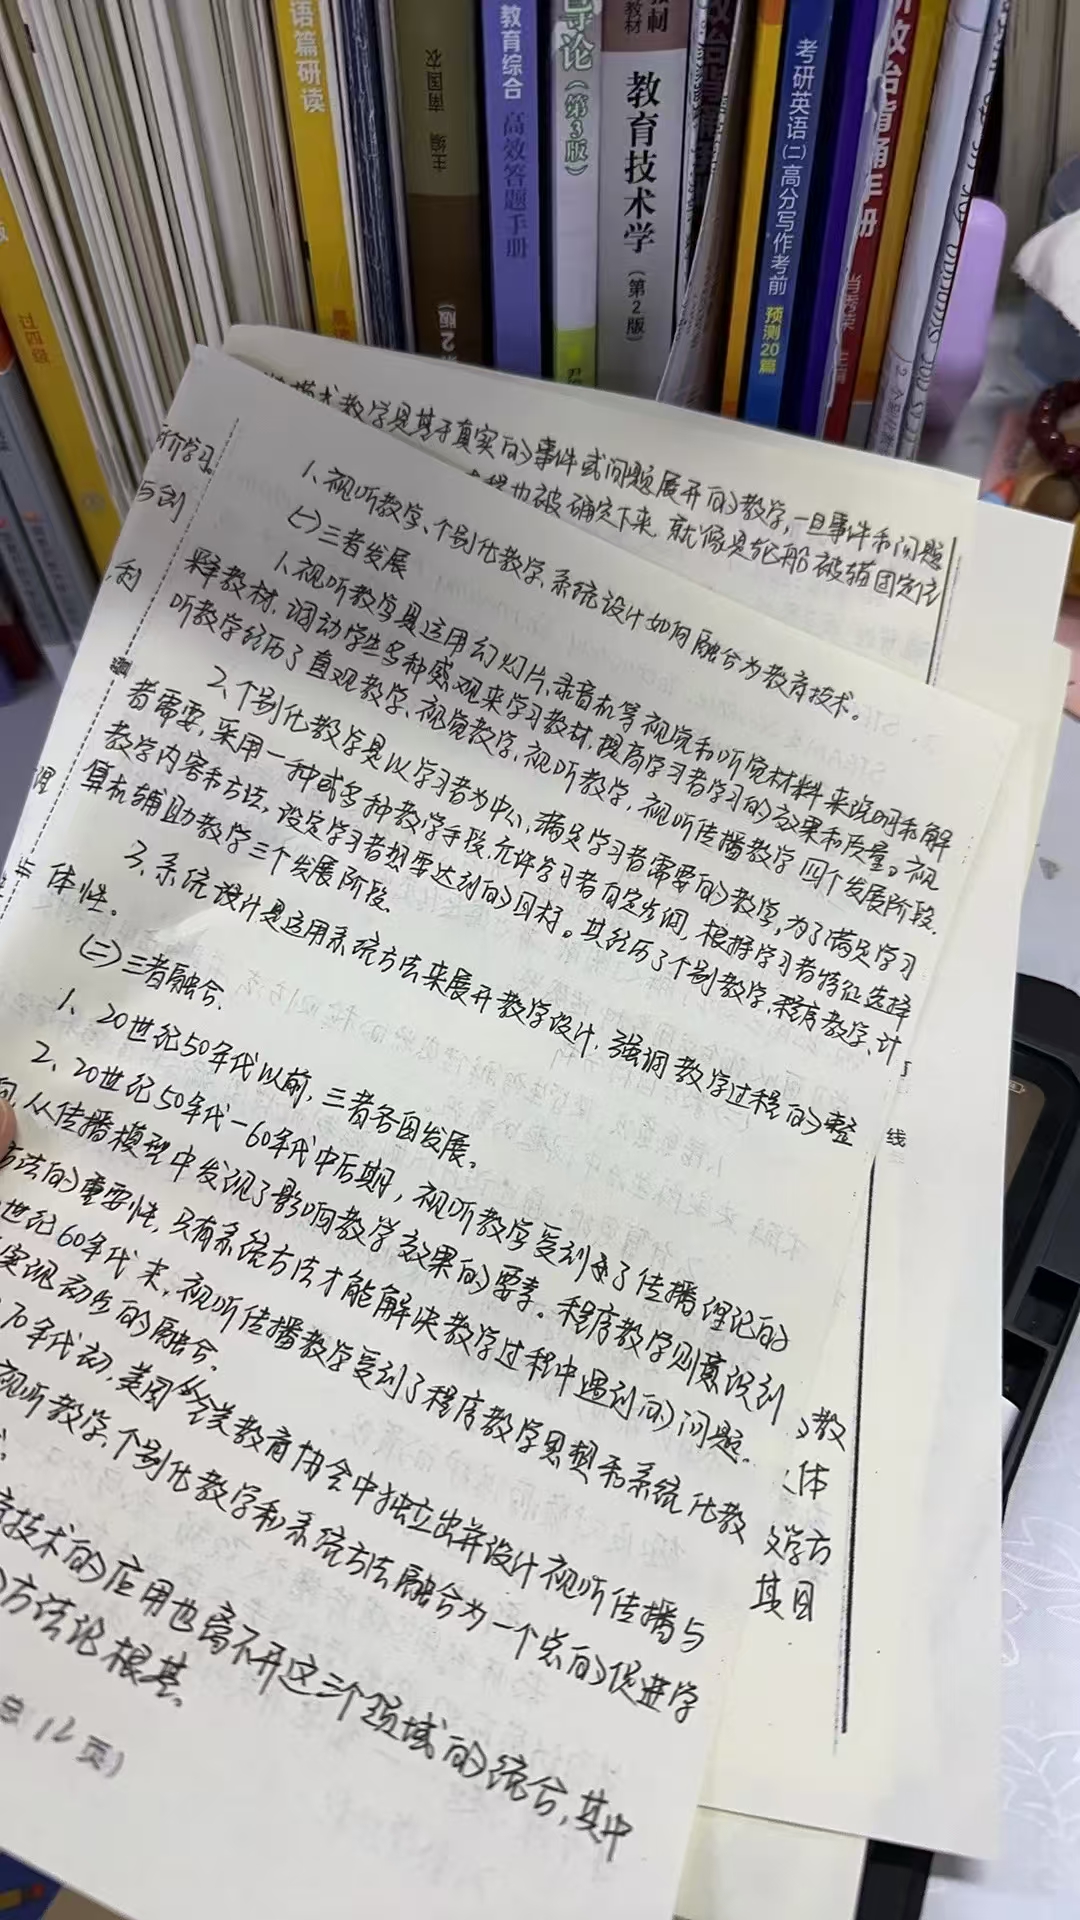 语篇研读
主编 南国农
教育综合 高效答题手册
导论(第3版)
教材
教育技术学(第2版)
考研英语(二)高分写作考前预测20篇
政治背诵手册
肖秀荣 主编
过四级
教学是基于真实的事件或问题展开的教学,一旦事件和问题
也被确定下来,就像是轮船被锚固定住
介学习
1、视听教学、个别化教学、系统设计如何融合为教育技术。
(一)三者发展
1、视听教学是运用幻灯片、录音机等视觉和听觉材料来说明和解
释教材,调动学生多种感观来学习教材,提高学习者学习的效果和质量。视
听教学经历了直观教学、视觉教学、视听教学、视听传播教学四个发展阶段.
2、个别化教学是以学习者为中心,满足学习者需要的教学,为了满足学习
者需要,采用一种或多种教学手段,允许学习者自定步调,根据学习者特征选择
教学内容和方法,设定学习者想要达到的目标。其经历了个别教学、程序教学、计
算机辅助教学三个发展阶段.
3、系统设计是运用系统方法来展开教学设计,强调教学过程的整
体性。
(二)三者融合.
1、20世纪50年代以前,三者各自发展。
2、20世纪50年代-60年代中后期,视听教学受到了传播理论的
,从传播模型中发现了影响教学效果的要素。程序教学则意识到
方法的重要性,只有系统方法才能解决教学过程中遇到的问题.
世纪60年代末,视听传播教学受到了程序教学思想和系统化教
实现初步的融合.
70年代初,美国从全美教育协会中独立出并设计视听传播与
视听教学、个别化教学和系统方法融合为一个总的促进学
技术的应用也离不开这三个领域的统合,其中
方法论根基.
总12页)
线
教
体
学方
其目